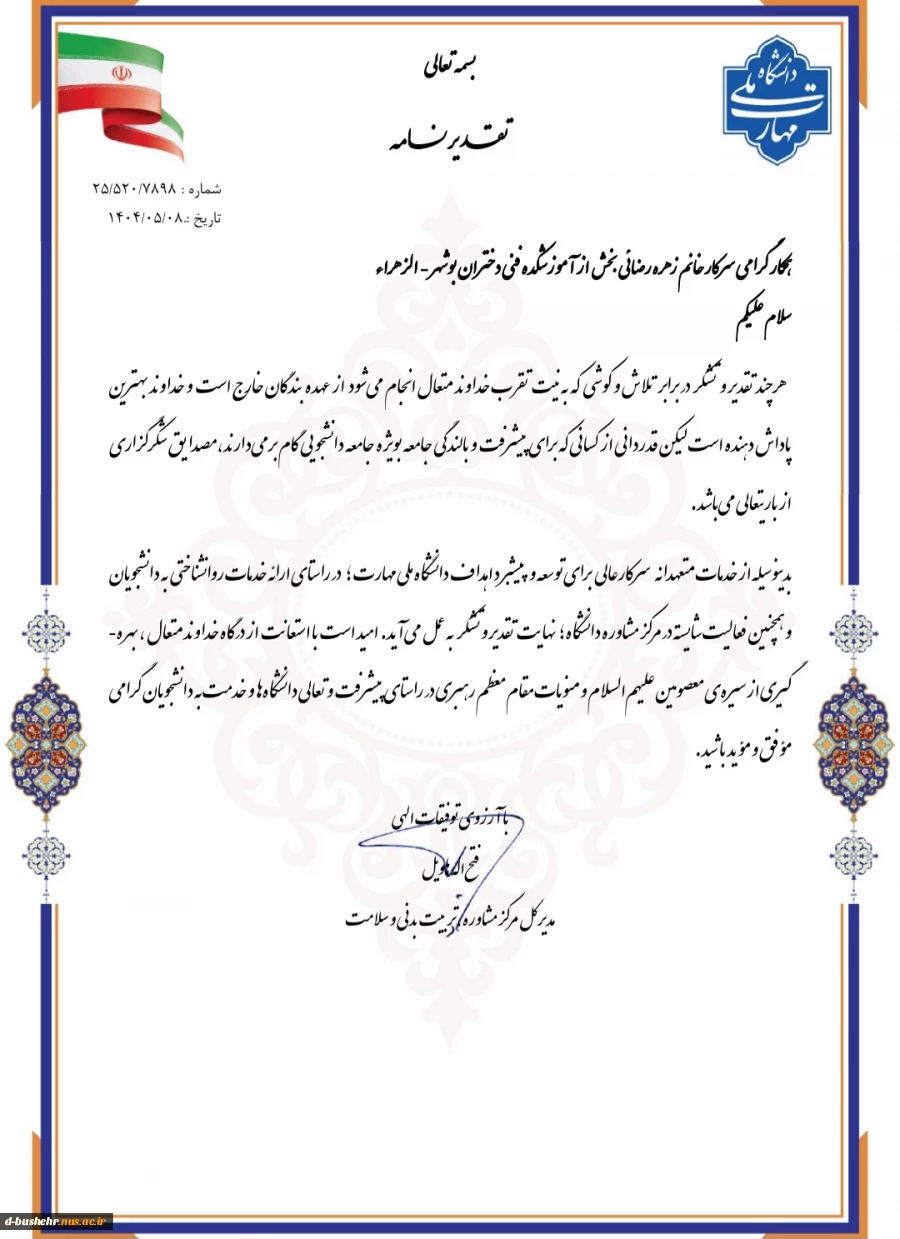 بسمه تعالی
دانشگاه ملی مهارت
تقدیرنامه
شماره : ۲۵/۵۲۰/۷۸۹۸
تاریخ :.۱۴۰۴/۰۵/۰۸
همکار گرامی سرکار خانم زهره رضائی بخش از آموزشکده فنی دختران بوشهر - الزهراء
سلام علیکم
هرچند تقدیر و تشکر در برابر تلاش و کوشی که به نیت تقرب خداوند متعال انجام می‌شود از عهده بندگان خارج است و خداوند بهترین
پاداش دهنده است لیکن قدردانی از کسانی که برای پیشرفت و بالندگی جامعه بویژه جامعه دانشجویی گام برمی‌دارند، مصداق شکرگزاری
از باریتعالی می‌باشد.
بدینوسیله از خدمات متعهدانه سرکارعالی برای توسعه و پیشبرد اهداف دانشگاه ملی مهارت؛ در راستای ارائه خدمات روانشناختی به دانشجویان
و همچنین فعالیت شایسته در مرکز مشاوره دانشگاه؛ نهایت تقدیر و تشکر به عمل می‌آید. امید است با استعانت از درگاه خداوند متعال، بهره-
گیری از سیره‌ی معصومین علیهم السلام و منویات مقام معظم رهبری در راستای پیشرفت و تعالی دانشگاه‌ها و خدمت به دانشجویان گرامی
مؤفق و مؤید باشید.
با آرزوی توفیقات الهی
فتح اله
مدیرکل مرکز مشاوره، تربیت بدنی و سلامت
d-bushehr.nus.ac.ir